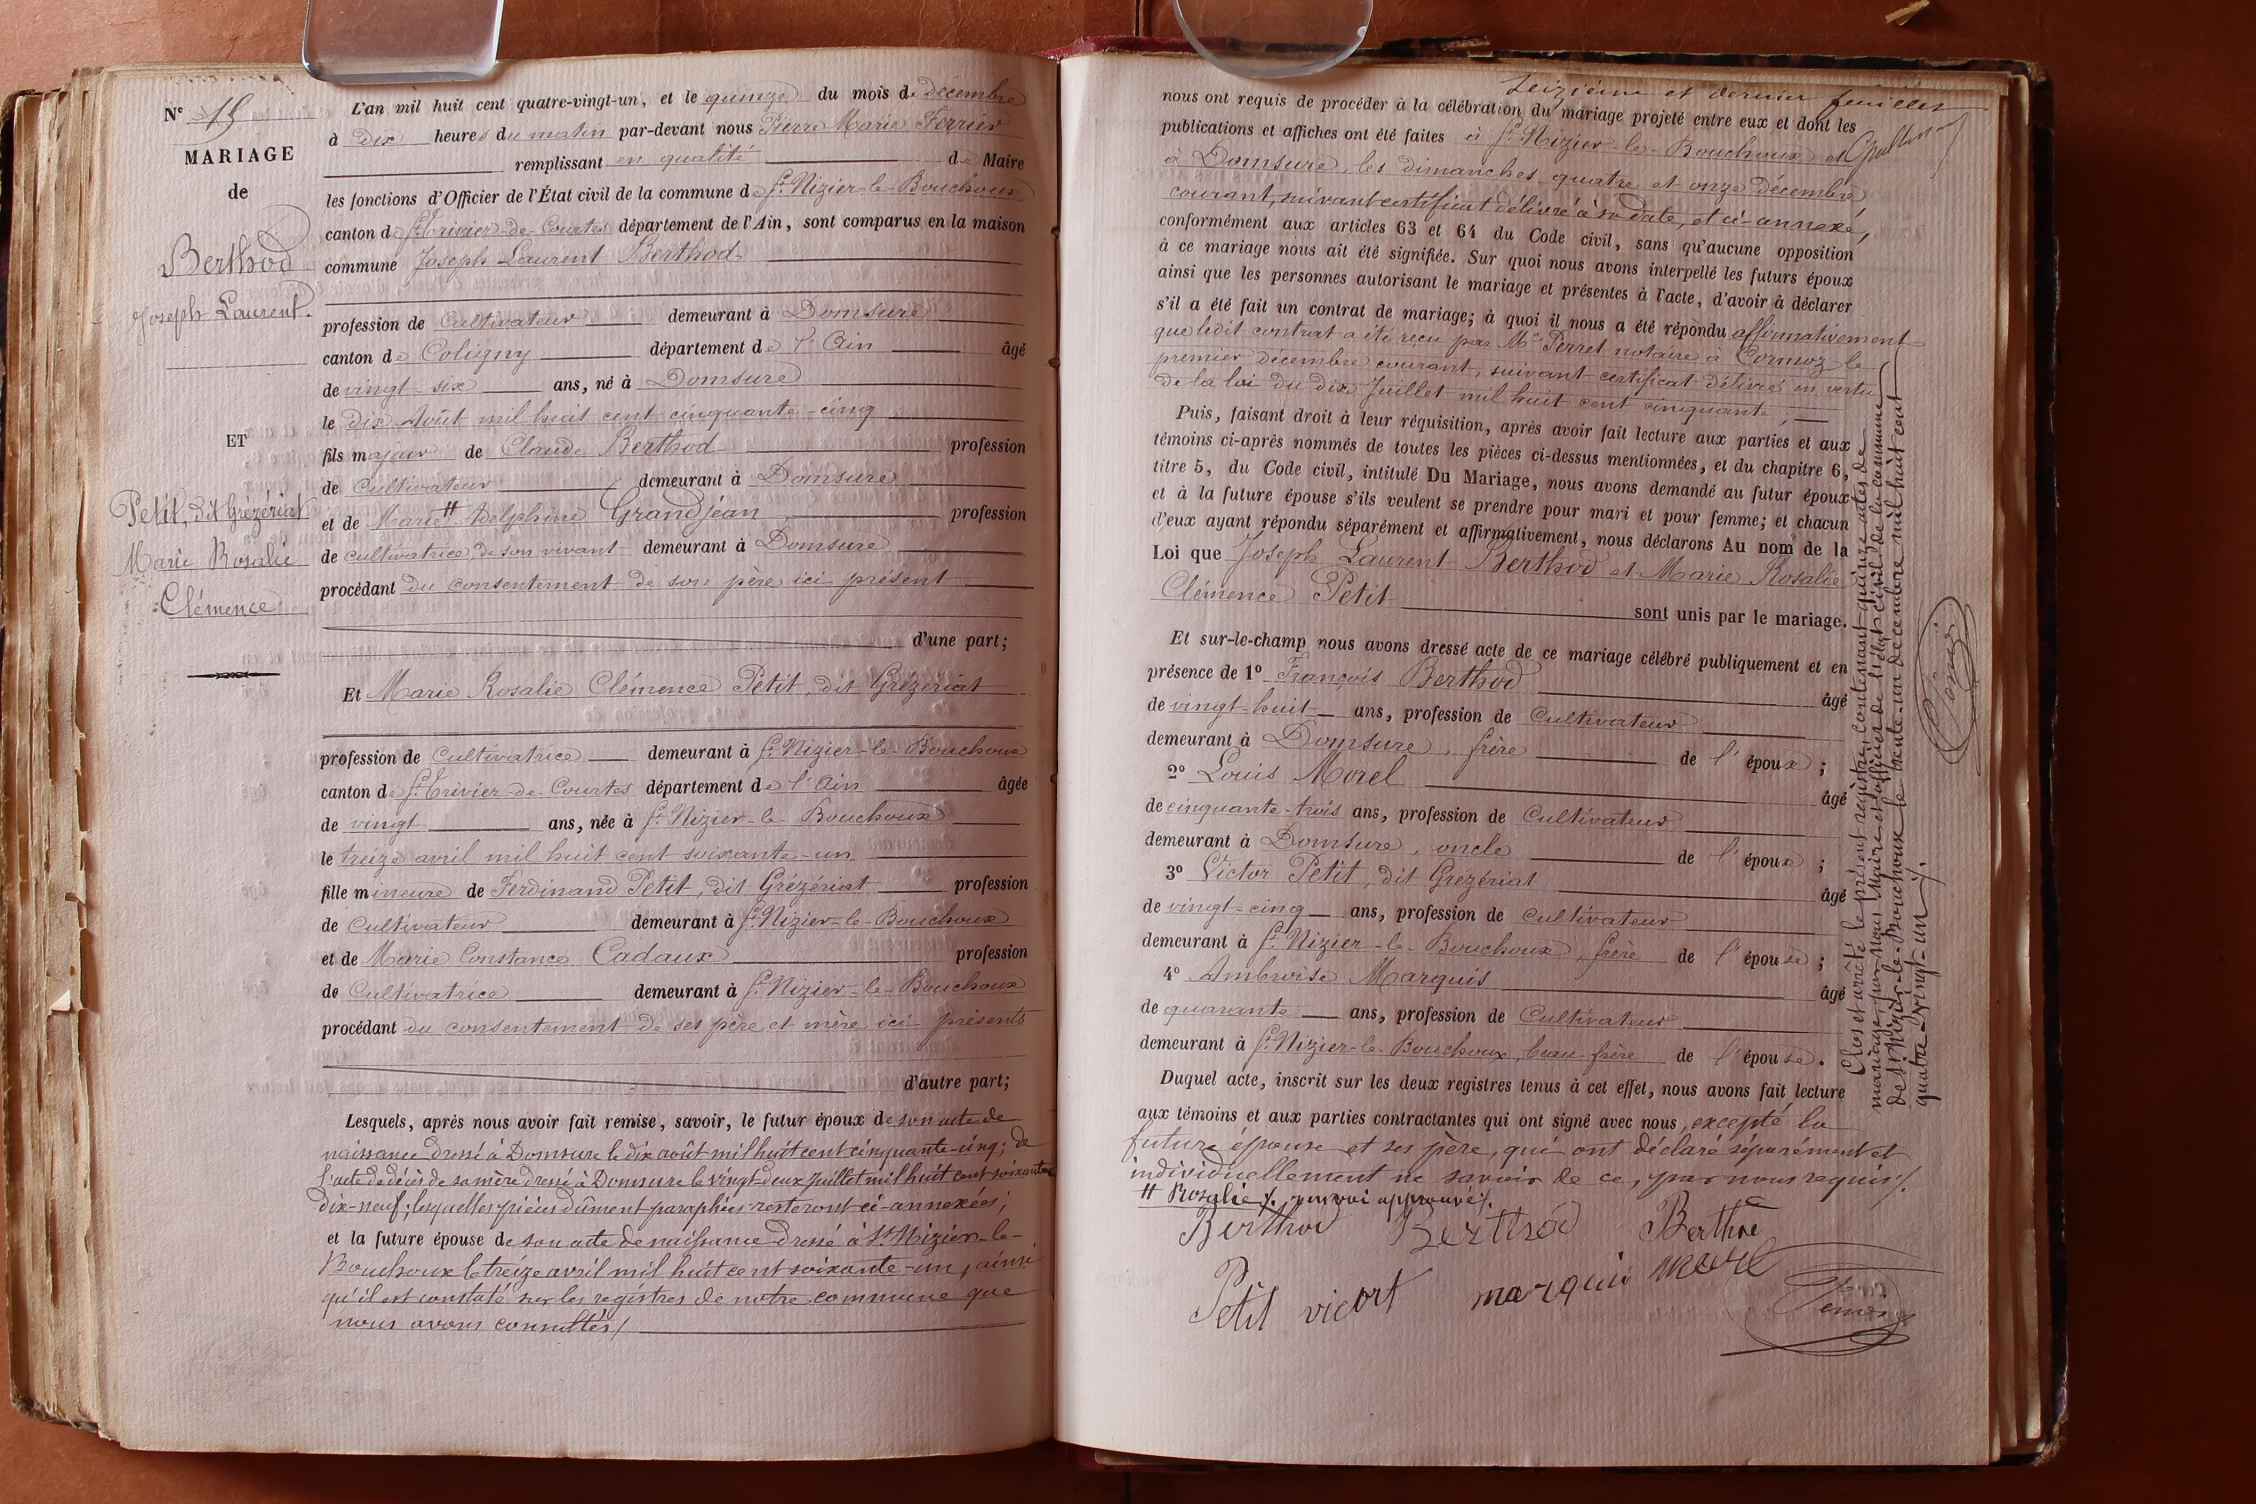 N° 15
MARIAGE
de
Berthod
Joseph Laurent.
ET
Petit, dit Grézériat
Marie Rosalie
Clémence
L'an mil huit cent quatre-vingt-un, et le quinze du mois de décembre
à Dix heures du matin par-devant nous Pierre Marie Ferrier
remplissant en qualité de Maire
les fonctions d'Officier de l'État civil de la commune de St Nizier-le-Bouchoux
canton de St Trivier-de-Courtes département de l'Ain, sont comparus en la maison
commune Joseph Laurent Berthod
profession de Cultivateur demeurant à Domsure
canton de Coligny département de l'Ain âgé
de vingt-six ans, né à Domsure
le dix Août mil huit cent cinquante-cinq
fils majeur de Claude Berthod profession
de Cultivateur demeurant à Domsure
et de Marie # Adelphine Grandjean profession
de cultivatrice de son vivant demeurant à Domsure
procédant du consentement de son père ici présent
d'une part;
Et Marie Rosalie Clémence Petit, dit Grézériat
profession de Cultivatrice demeurant à St Nizier-le-Bouchoux
canton de St Trivier-de-Courtes département de l'Ain âgée
de vingt ans, née à St Nizier-le-Bouchoux
le treize avril mil huit cent soixante-un
fille mineure de Ferdinand Petit, dit Grézériat profession
de Cultivateur demeurant à St Nizier-le-Bouchoux
et de Marie Constance Cadaux profession
de Cultivatrice demeurant à St Nizier-le-Bouchoux
procédant du consentement de ses père et mère ici présents
d'autre part;
Lesquels, après nous avoir fait remise, savoir, le futur époux de son acte de
naissance dressé à Domsure le dix août mil huit cent cinquante-cinq; de
l'acte de décès de sa mère dressé à Domsure le vingt-deux juillet mil huit cent soixante
dix-neuf; lesquelles pièces dûment paraphées resteront ci-annexées;
et la future épouse de son acte de naissance dressé à St Nizier-le-
Bouchoux le treize avril mil huit cent soixante-un, ainsi
qu'il est constaté sur les régistres de notre commune que
nous avons consultés/
Seizième et dernier feuillet
nous ont requis de procéder à la célébration du mariage projeté entre eux et dont les
publications et affiches ont été faites à St Nizier-le-Bouchoux et
à Domsure, les dimanches quatre et onze décembre
courant, suivant certificat délivré à sa date, et ci-annexé,
conformément aux articles 63 et 64 du Code civil, sans qu'aucune opposition
à ce mariage nous ait été signifiée. Sur quoi nous avons interpellé les futurs époux
ainsi que les personnes autorisant le mariage et présentes à l'acte, d'avoir à déclarer
s'il a été fait un contrat de mariage; à quoi il nous a été répondu affirmativement
que ledit contrat a été reçu par Me Perret notaire à Cormoz le
premier décembre courant, suivant certificat délivré en vertu
de la loi du dix Juillet mil huit cent cinquante;
Puis, faisant droit à leur réquisition, après avoir fait lecture aux parties et aux
témoins ci-après nommés de toutes les pièces ci-dessus mentionnées, et du chapitre 6,
titre 5, du Code civil, intitulé Du Mariage, nous avons demandé au futur époux
et à la future épouse s'ils veulent se prendre pour mari et pour femme; et chacun
d'eux ayant répondu séparément et affirmativement, nous déclarons Au nom de la
Loi que Joseph Laurent Berthod et Marie Rosalie
Clémence Petit sont unis par le mariage.
Et sur-le-champ nous avons dressé acte de ce mariage célébré publiquement et en
présence de 1° François Berthod âgé
de vingt-huit ans, profession de Cultivateur
demeurant à Domsure, frère de l'époux;
2° Louis Morel âgé
de cinquante-trois ans, profession de Cultivateur
demeurant à Domsure, oncle de l'époux;
3° Victor Petit, dit Grezériat âgé
de vingt-cinq ans, profession de Cultivateur
demeurant à St Nizier-le-Bouchoux, frère de l'épouse;
4° Ambroise Marquis âgé
de quarante ans, profession de Cultivateur
demeurant à St Nizier-le-Bouchoux, beau-frère de l'épouse.
Duquel acte, inscrit sur les deux registres tenus à cet effet, nous avons fait lecture
aux témoins et aux parties contractantes qui ont signé avec nous, excepté la
future épouse et ses père, qui ont déclaré séparément et
individuellement ne savoir de ce, par nous requis/.
# Rosalie/. renvoi approuvé/.
Berthod Berthod Berthod
Petit victort marquis morel
Clos et arrêté le présent registre, contenant quinze actes de
mariage, par Nous Maire et officier de l'état civil de la commune
de St Nizier-le-Bouchoux le trente-un décembre mil huit cent
quatre-vingt-un/.